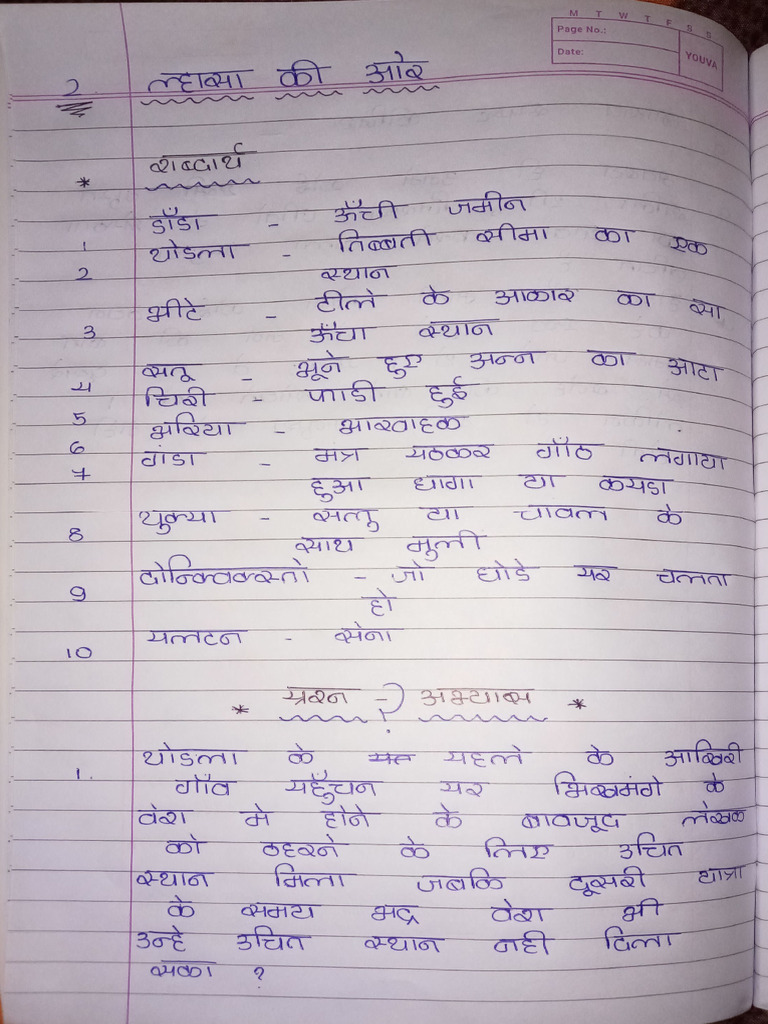 M T W T F S S
Page No.:
Date:
YOUVA
2 ल्हासा की ओर
* शब्दार्थ
1 डाँडा - ऊँची जमीन
2 थोडला - तिब्बती सीमा का एक
स्थान
3 भीटे - टीले के आकार का सा
ऊँचा स्थान
4 सतू - भूने हुए अन्न का आटा
5 चिरी - फाडी हुई
6 भरिया - भारवाहक
7 गंडा - मंत्र पढकर गाँठ लगाया
हुआ धागा या कपडा
8 थुक्पा - सत्तु या चावल के
साथ मुली
9 दोन्क्विक्स्तो - जो घोडे पर चलता
हो
10 पलटन - सेना
* प्रश्न - अभ्यास *
?
1. थोडला के पहले के आखिरी
गाँव पहुँचन पर भिखमंगे के
वेश मे होने के बावजूद लेखक
को ठहरने के लिए उचित
स्थान मिला जबकि दूसरी यात्रा
के समय भद्र वेश भी
उन्हे उचित स्थान नही दिला
सका ?